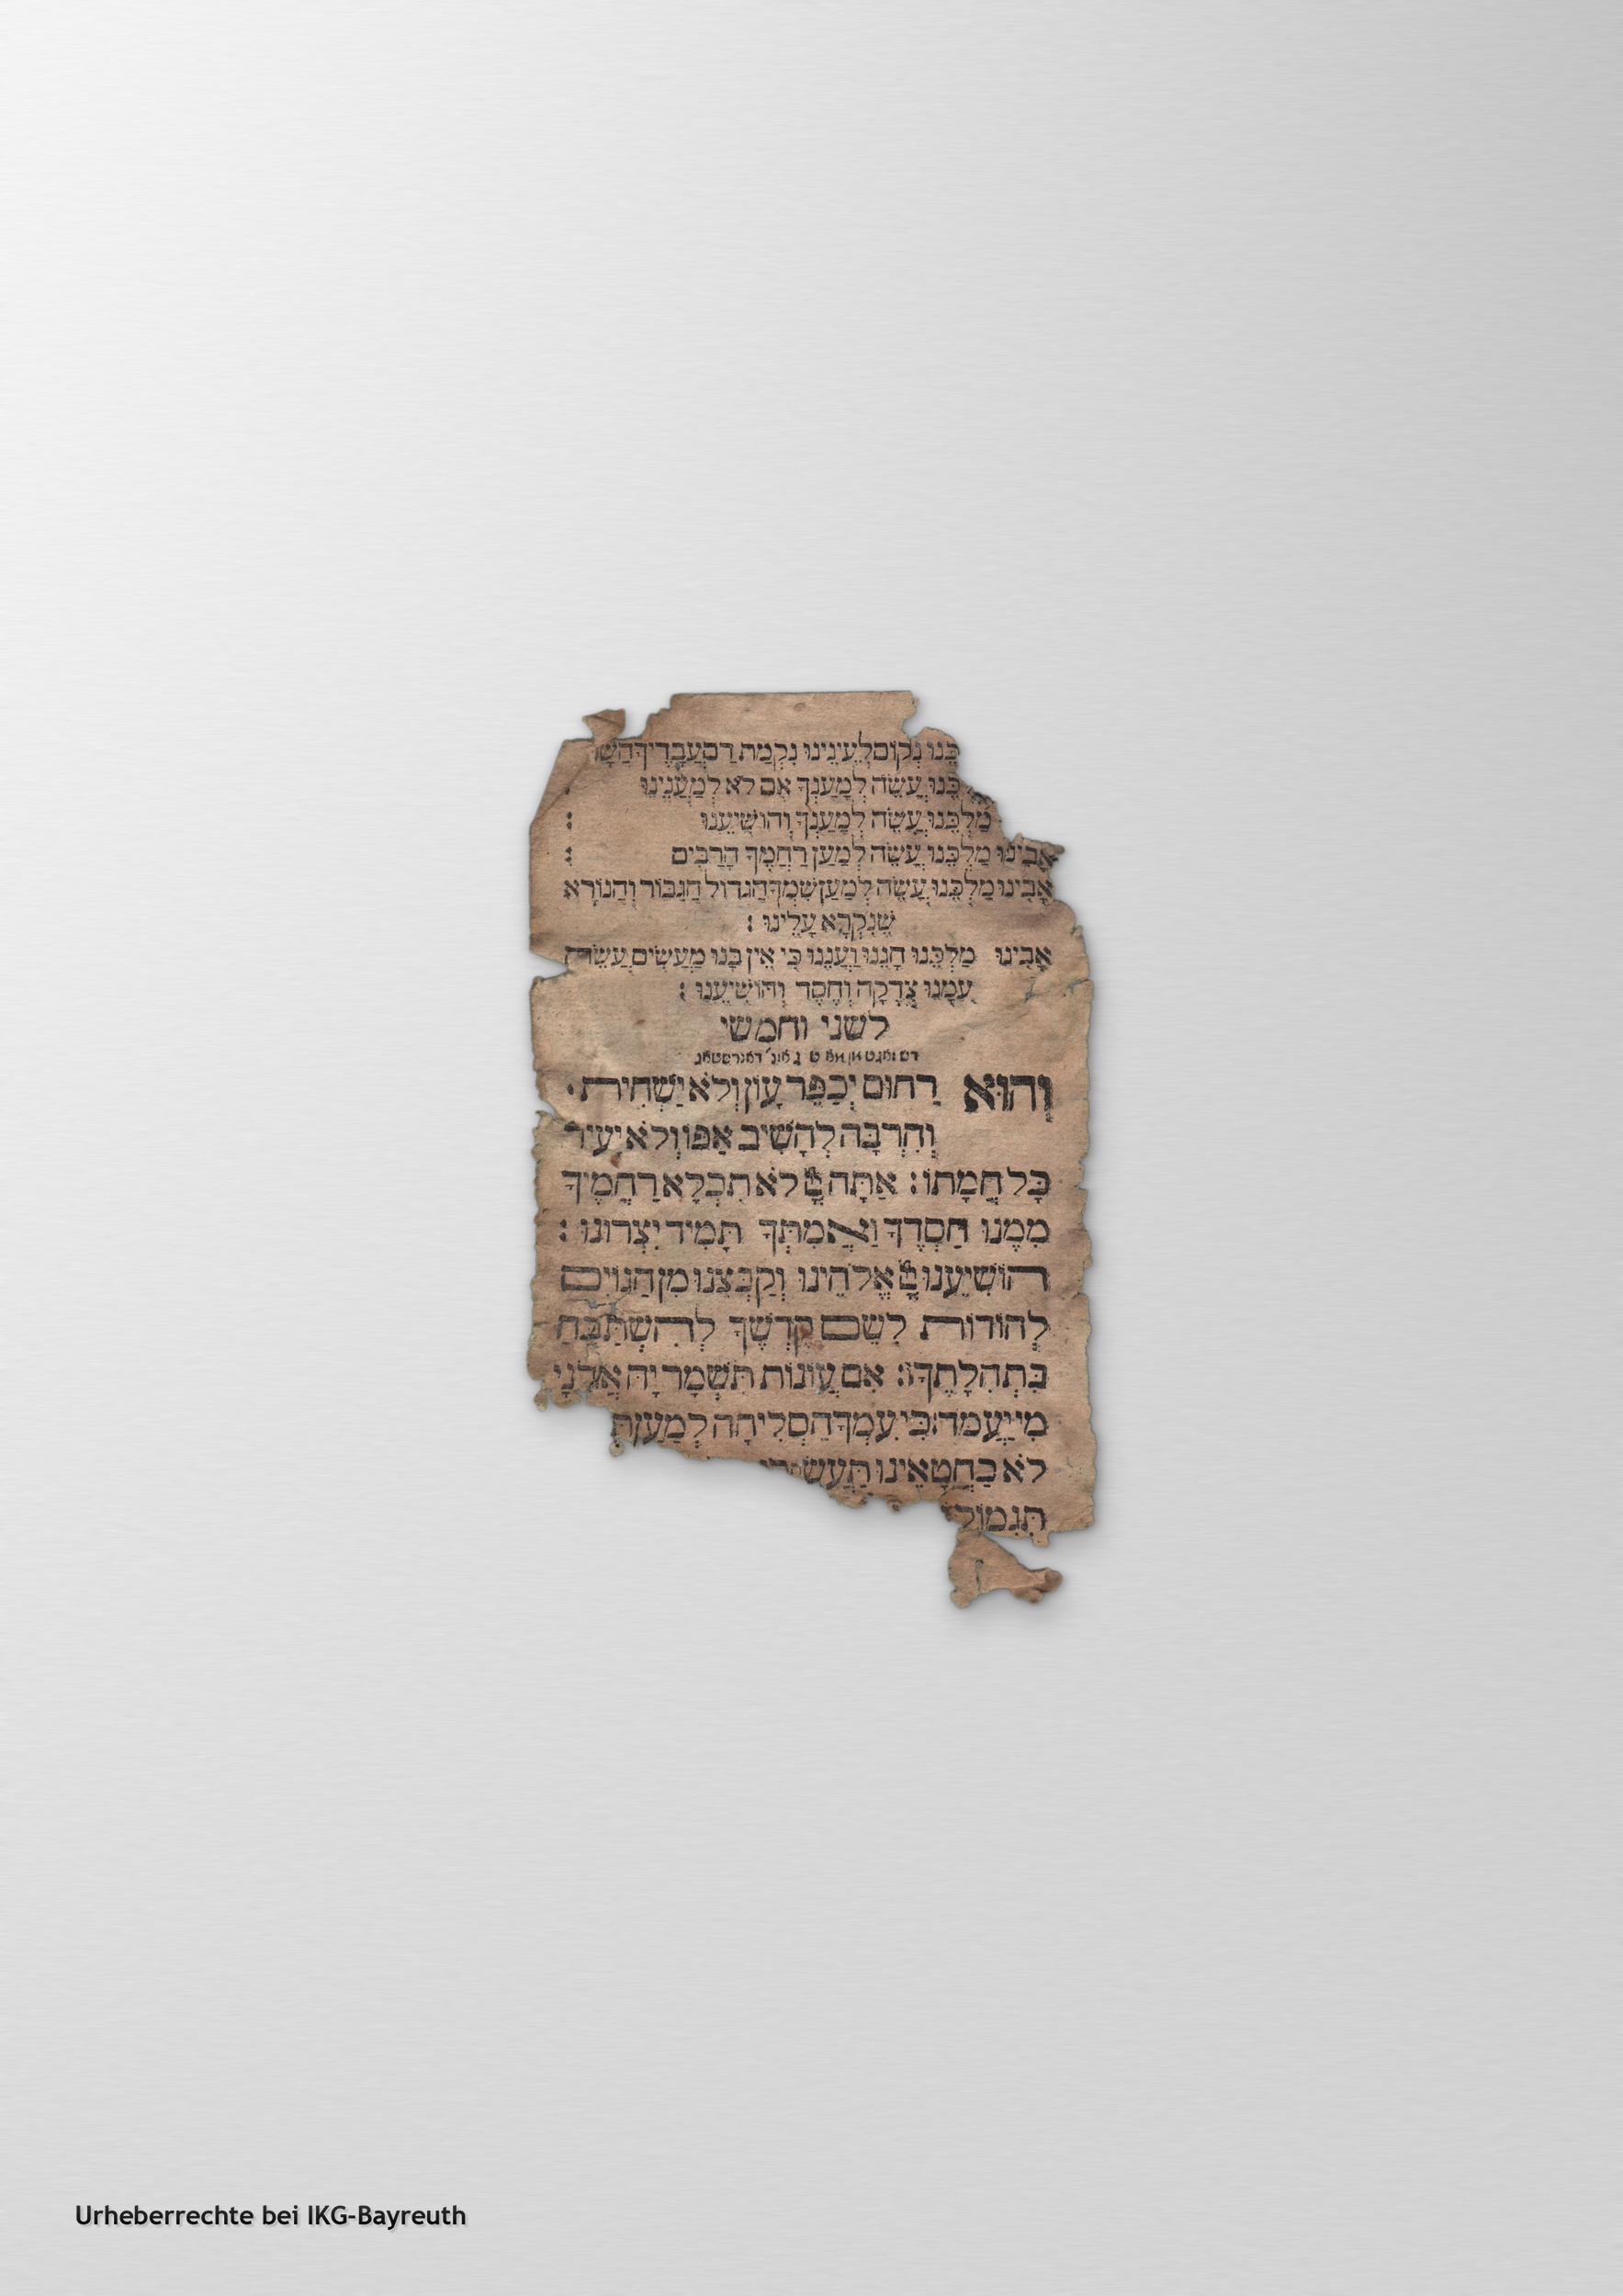 כֵּנוּ נְקוֹם לְעֵינֵינוּ נִקְמַת דַם עֲבָדֶיךָ הַשָּׁ
כֵּנוּ עֲשֵׂה לְמַעַנְךָ אִם לֹא לְמַעֲנֵינוּ :
מַלְכֵּנוּ עֲשֵׂה לְמַעַנְךָ וְהוֹשִׁיעֵנוּ :
אָבִינוּ מַלְכֵּנוּ עֲשֵׂה לְמַעַן רַחֲמֶךָ הָרַבִּים :
אָבִינוּ מַלְכֵּנוּ עֲשֵׂה לְמַעַן שִׁמְךָ הַגָּדוֹל הַגִּבּוֹר וְהַנּוֹרָא
שֶׁנִּקְרָא עָלֵינוּ :
אָבִינוּ מַלְכֵּנוּ חָנֵּנוּ וַעֲנֵנוּ כִּי אֵין בָּנוּ מַעֲשִׂים עֲשֵׂה
עִמָּנוּ צְדָקָה וָחֶסֶד וְהוֹשִׁיעֵנוּ :
לשני וחמשי
וְהוּא רַחוּם יְכַפֵּר עָוֹן וְלֹא יַשְׁחִית ·
וְהִרְבָּה לְהָשִׁיב אַפּוֹ וְלֹא יָעִיר
כָּל חֲמָתוֹ : אַתָּה לֹא תִכְלָא רַחֲמֶיךָ
מִמֶּנוּ חַסְדְּךָ וַאֲמִתְּךָ תָּמִיד יִצְּרוּנוּ :
הוֹשִׁיעֵנוּ אֱלֹהֵינוּ וְקַבְּצֵנוּ מִן הַגּוֹיִם
לְהוֹדוֹת לְשֵׁם קָדְשֶׁךָ לְהִשְׁתַּבֵּחַ
בִּתְהִלָּתֶךָ : אִם עֲוֹנוֹת תִּשְׁמָר יָהּ אֲדֹנָי
מִי יַעֲמֹד : כִּי עִמְּךָ הַסְּלִיחָה לְמַעַן תִּ
לֹא כַחֲטָאֵינוּ תַּעֲשֶׂה
תִּגְמוֹל
Urheberrechte bei IKG-Bayreuth